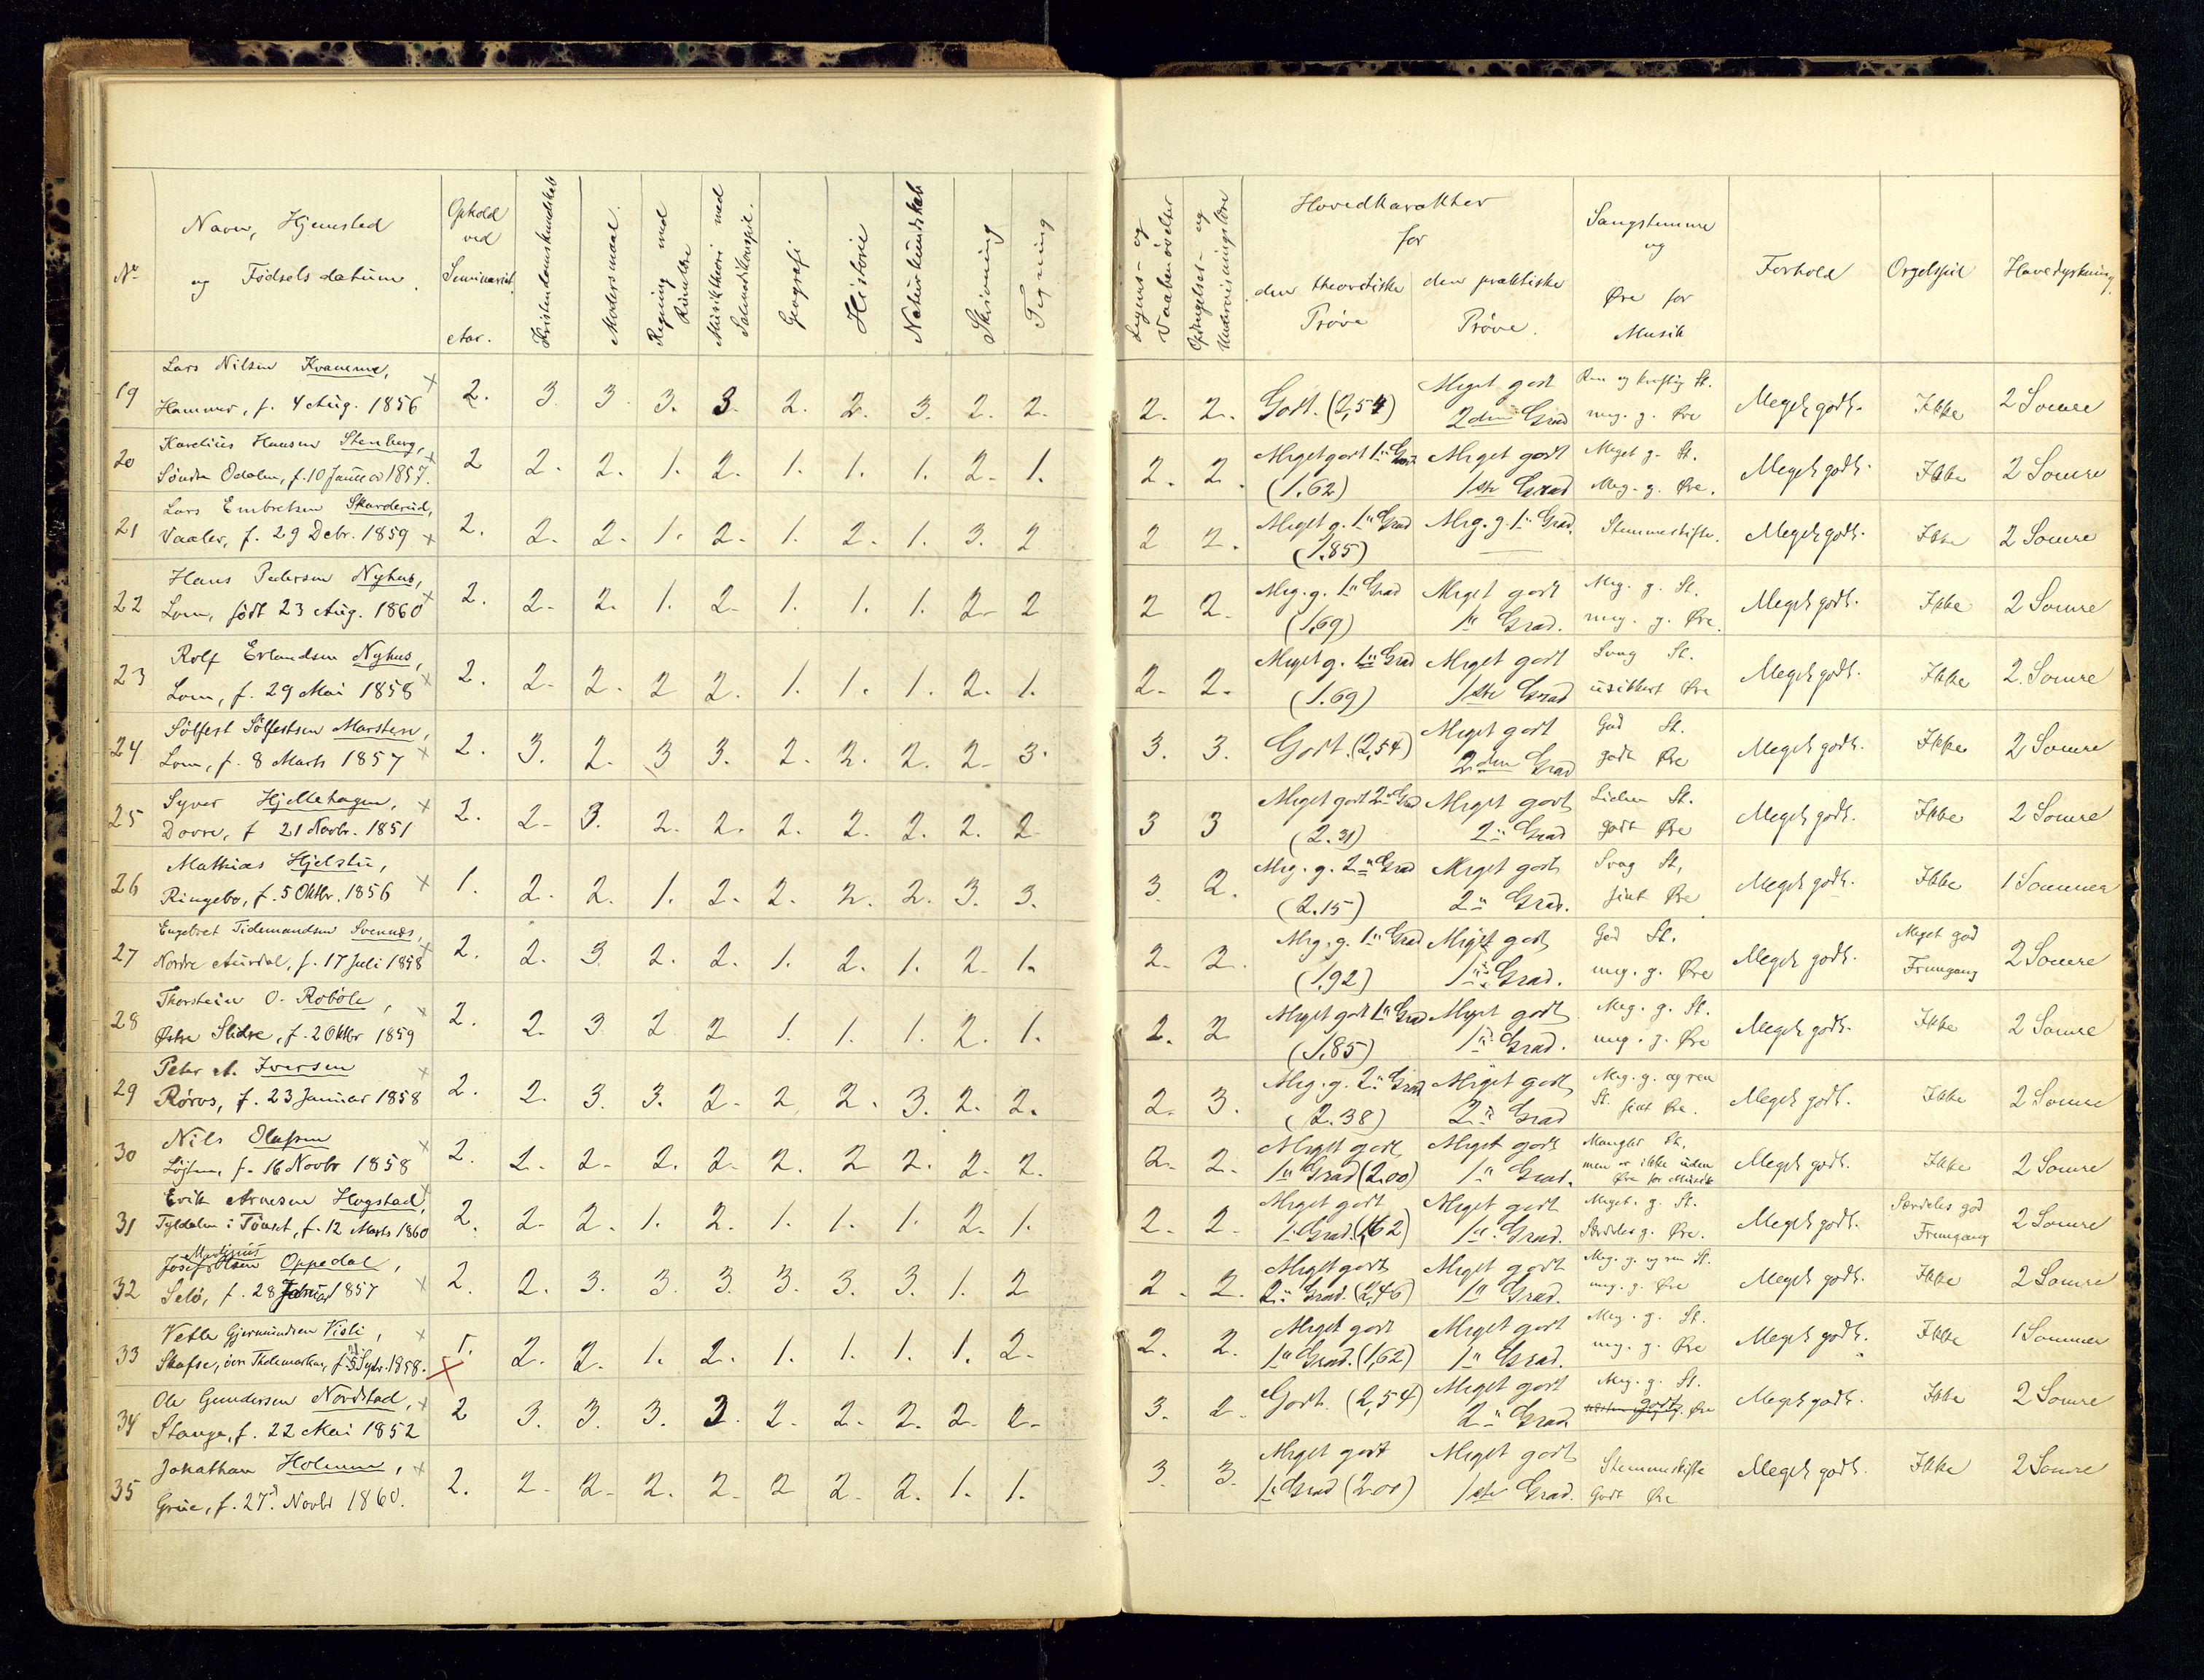 No
Navn, Hjemsted
og Fødselsdatum.
Ophold ved Seminariet. Aar.
Kristendomskundskab
Modersmaal.
Regning med Rumlære
Musiktheori med Salmodikonspil.
Geografi
Historie
Naturkundskab
Skrivning
Tegning
Legems- og Vaabenøvelser
Opdragelses- og Undervisningslære
Hovedkarakter for
den theoretiske Prøve
den praktiske Prøve.
Sangstemme og Øre for Musik
Forhold
Orgelspil
Havedyrkning.
19 Lars Nilsen Kvamme, 2. 3 3. 3. 3. 2. 2. 3. 2. 2. 2. 2. Godt. (2,54) Meget godt Ren og kraftig St. Meget godt. Ikke 2 Somre
Hammer, f. 4 Aug. 1856 2den Grad meg. g. Øre
20 Karelius Hansen Stenberg, 2 2. 2. 1. 2. 1. 1. 1. 2. 1. 2. 2. Meget godt 1ste Grad Meget godt Meget g. St. Meget godt. Ikke 2 Somre
Søndre Odalen, f. 10 Januar 1857. (1.62) 1ste Grad Meg. g. Øre.
21 Lars Embretsen Skarderud, 2. 2. 2. 1. 2. 1. 2. 1. 3. 2 2 2. Meget g. 1" Grad Meg. g. 1" Grad. Stemmeskifte. Meget godt. Ikke 2 Somre
Vaaler, f. 29 Debr. 1859 (1.85)
22 Hans Pedersen Nyhus, 2. 2. 2. 1. 2. 1. 1. 1. 2. 2 2 2. Meg. g. 1" Grad Meget godt Meg. g. St. Meget godt. Ikke 2 Somre
Lom, født 23 Aug. 1860 (1.69) 1" Grad. meg. g. Øre.
23 Rolf Erlandsen Nyhus, 2. 2. 2. 2 2. 1. 1. 1. 2. 1. 2. 2. Meget g. 1" Grad Meget godt Svag St. Meget godt. Ikke 2. Somre
Lom, f. 29 Mai 1858 (1.69) 1ste Grad usikkert Øre
24 Sølfest Sølfestsen Marstein, 2. 3. 2. 3 3. 2. 2. 2. 2. 3. 3. 3. Godt. (2,54) Meget godt God St. Meget godt. Ikke 2 Somre
Lom, f. 8 Marts 1857 2den Grad godt Øre
25 Syver Hjellehagen, 2. 2. 3. 2. 2. 2. 2. 2. 2. 2 3 3 Meget godt 2" Grad Meget godt Liden St. Meget godt. Ikke 2 Somre
Dovre, f 21 Novbr. 1851 (2.31) 2" Grad godt Øre
26 Mathias Hjelstu, 1. 2. 2. 1. 2. 2. 2. 2. 3. 3. 3. 2. Meg. g. 2" Grad Meget godt Svag St, Meget godt. Ikke 1 Sommer
Ringebo, f. 5 Oktbr. 1856 (2.15) 2" Grad. fint Øre
27 Engebret Tidemandsen Svennæs, 2. 2. 3. 2. 2. 1. 2. 1. 2. 1. 2. 2. Meg. g. 1" Grad Meget godt God St. Meget godt. Meget god Fremgang 2 Somre
Nordre Aurdal, f. 17 Juli 1858 (1.92) 1" Grad. meg. g. Øre
28 Thorstein O. Robøle, 2. 2. 3. 2. 2 1. 1. 1. 2. 1. 2. 2 Meget godt 1" Grad Meget godt Meg. g. St. Meget godt. Ikke 2 Somre
Østre Slidre, f. 2 Oktbr 1859 (1.85) 1" Grad. meg. g. Øre
29 Peter A. Iversen 2. 2. 3. 3. 2. 2 2. 3. 2. 2. 2. 3. Meg. g. 2" Grad Meget godt Meg. g. og ren Meget godt. Ikke 2 Somre
Røros, f. 23 Januar 1858 (2.38) 2" Grad St. fint Øre.
30 Nils Olafsen 2. 2. 2. 2. 2. 2. 2 2. 2. 2. 2. 2. Meget godt Meget godt Mangler St, Meget godt. Ikke 2 Somre
Løjten, f. 16 Novbr 1858 1" Grad (2.00) 1" Grad. men er ikke uden Øre for Musik
31 Erik Arnesen Hogstad, 2. 2. 2. 1. 2. 1. 1. 1. 2. 1. 2. 2. Meget godt Meget godt Meget. g. St. Meget godt. Særdeles god Fremgang 2 Somre
Tyldalen i Tønset, f. 12 Marts 1860 1" Grad. (1,62) 1" Grad. Særdeles g. Øre.
32 Josef Martinius Olsen Oppedal, 2. 2. 3. 3. 3. 3. 3. 3. 1. 2 2. 2. Meget godt Meget godt Meg. g. og ren St. Meget godt. Ikke 2 Somre
Selø, f. 28 1857 2" Grad. (2,46) 1" Grad. meg. g. Øre
33 Vetle Gjermundsen Visli, 1. 2. 2. 1. 2. 1. 1. 1. 1. 2. 2. 2. Meget godt Meget godt Meg. g. St. Meget godt. Ikke 1 Sommer
Skafse, øvre Thelemarken, f. Septr. 1858. 1" Grad. (1,62) 1" Grad. meg. g. Øre
34 Ole Gundersen Nordstad, 2 3. 3. 3. 3. 2. 2. 2. 2. 2. 3. 2. Godt. (2,54) Meget godt Meg. g. St. Meget godt. Ikke 2 Somre
Stange, f. 22 Mai 1852 2" Grad godt. Øre
35 Jonathan Holmen, 2. 2. 2. 2. 2. 2 2. 2. 1. 1. 3. 3. Meget godt Meget godt Stemmeskifte Meget godt. Ikke 2 Somre
Grue, f. 27. Novbr 1860. 1" Grad (2.00) 1ste Grad. Godt Øre